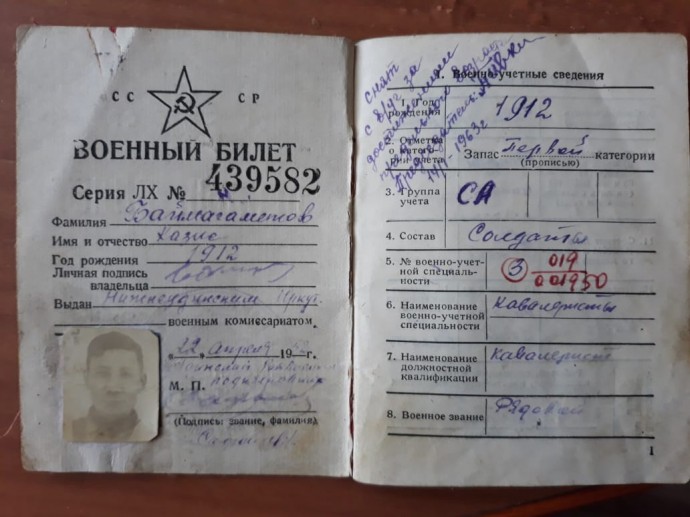 СС СР
ВОЕННЫЙ БИЛЕТ
Серия ЛХ № 439582
Фамилия Баймагаметов
Имя и отчество Хазис
Год рождения 1912
Личная подпись
владельца
Выдан Нижнеудинским Иркут
военным комиссариатом.
„22 апреля 19 г.
М. П.
(Подпись: звание, фамилия)
снят
с в/уч за
достижением
предельного возраста
1/VI-1963г
1. Военно-учетные сведения
1. Год рождения 1912
2. Отметка о категории учета Запас Первой категории
(прописью)
3. Группа учета СА
4. Состав Солдаты
5. № военно-учетной специальности 3 019
001950
6. Наименование военно-учетной специальности Кавалеристы
7. Наименование должностной квалификации Кавалерист
8. Военное звание Рядовой
1